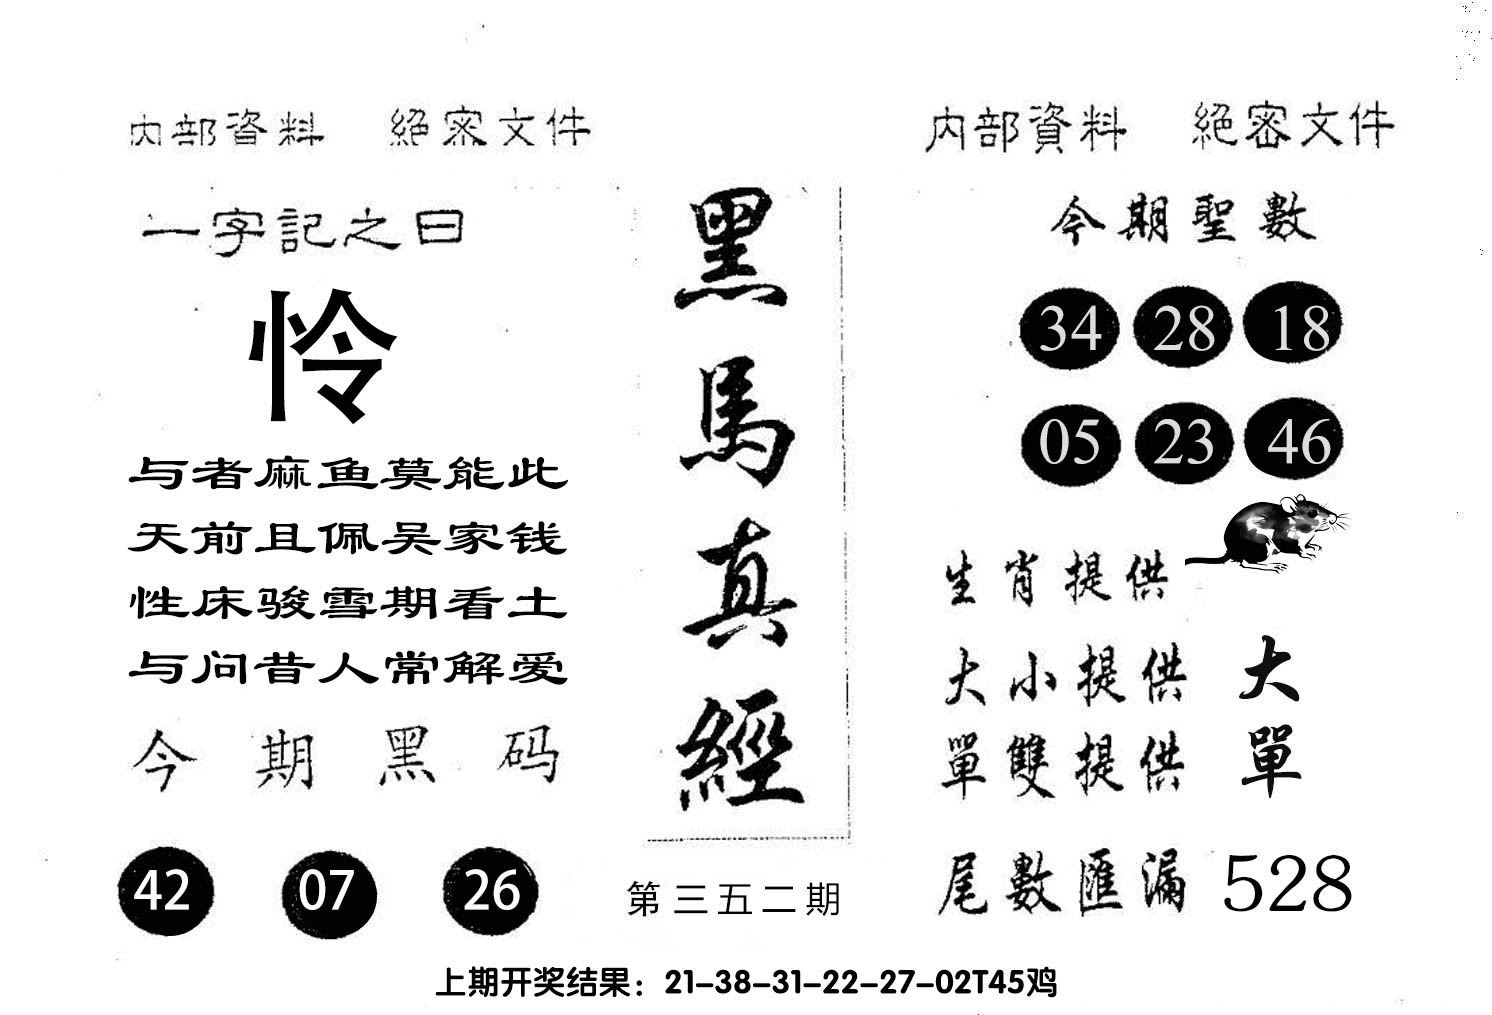 内部資料 絕密文件
一字記之曰
怜
与者麻鱼莫能此
天前且佩吴家钱
性床骏雪期看土
与问昔人常解爱
今期黑码
42 07 26
黑馬真經
第三五二期
内部資料 絕密文件
今期聖數
34 28 18
05 23 46
生肖提供
大小提供 大
單雙提供 單
尾數匯漏 528
上期开奖结果：21-38-31-22-27-02T45鸡